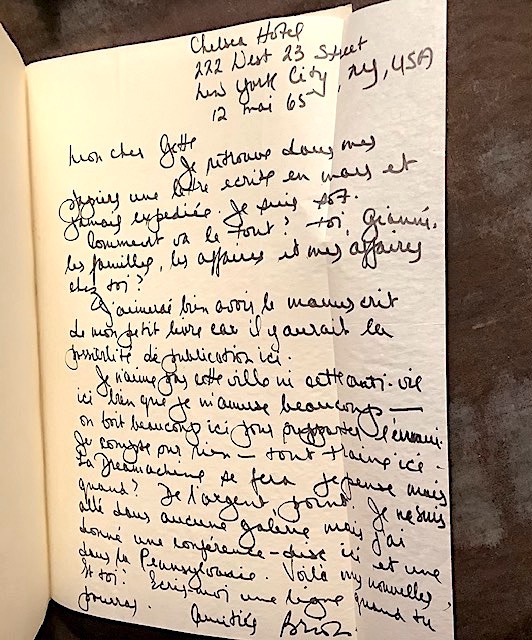 Chelsea Hotel
222 West 23 Street
New York City, NY, USA
12 mai 65
Mon cher
Je retrouve dans mes
papiers une lettre ecrite en mars et
jamais expediée. Je suis sot.
Comment va le tout? toi,
les familles, les affaires et mes affaires
chez toi?
J'aimerai bien avoir le manuscrit
de mon petit livre car il y aurait la
possibilité de publication ici.
Je n'aime pas cette ville ni cette anti-vie
ici bien que je m'amuse beaucoup —
on boit beaucoup ici pour supporter l'ennui.
Je compte sur rien — tout traine ici -
La Dreamachine se fera je pense mais
quand? De l'argent, point. Je ne suis
allé dans aucune galerie mais j'ai
donné une conférence - disc ici et une
dans la Pennsylvanie. Voilà my nouvelles,
et toi? Ecris-moi une ligne quand tu
pourras. Amitiés Brion